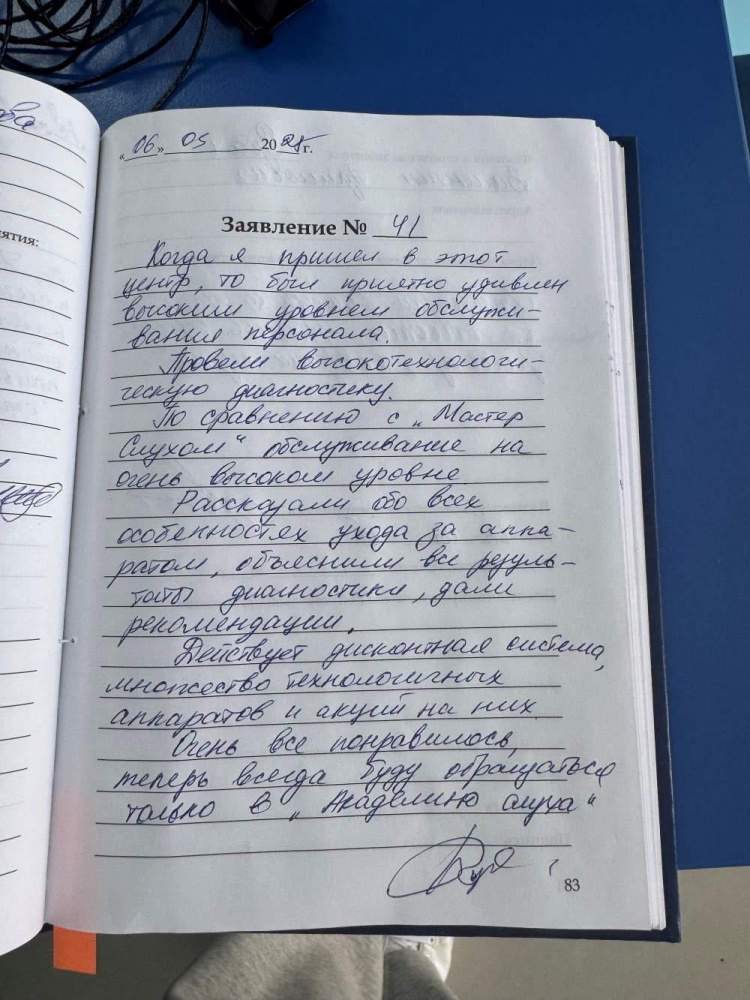 "06" 05 2025 г.
Заявление № 41
Когда я пришел в этот
центр, то был приятно удивлен
высоким уровнем обслужи-
вания персонала.
Провели высокотехнологи-
ческую диагностику.
По сравнению с „Мастер
Слухом" обслуживание на
очень высоком уровне
Рассказали обо всех
особенностях ухода за аппа-
ратом, объяснили все резуль-
таты диагностики, дали
рекомендации.
Действует дисконтная система,
множество технологичных
аппаратов и акций на них.
Очень все понравилось,
теперь всегда буду обращаться
только в „Академию слуха"
83
ятия: